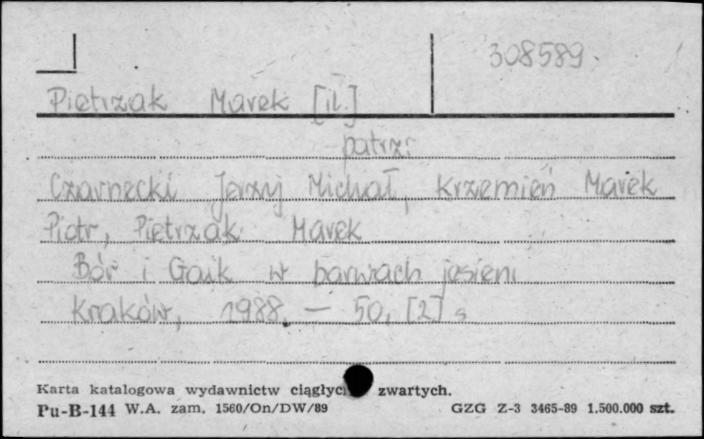 308589.
Pietrzak Marek [il.]
patrz:
Czarnecki Jerzy Michał, Krzemień Marek
Piotr, Pietrzak Marek
Bór i Gaik w barwach jesieni
Kraków, 1988. — 50, [2] s
Karta katalogowa wydawnictw ciągłyc zwartych.
Pu-B-144 W.A. zam. 1560/On/DW/89 GZG Z-3 3465-89 1.500.000 szt.